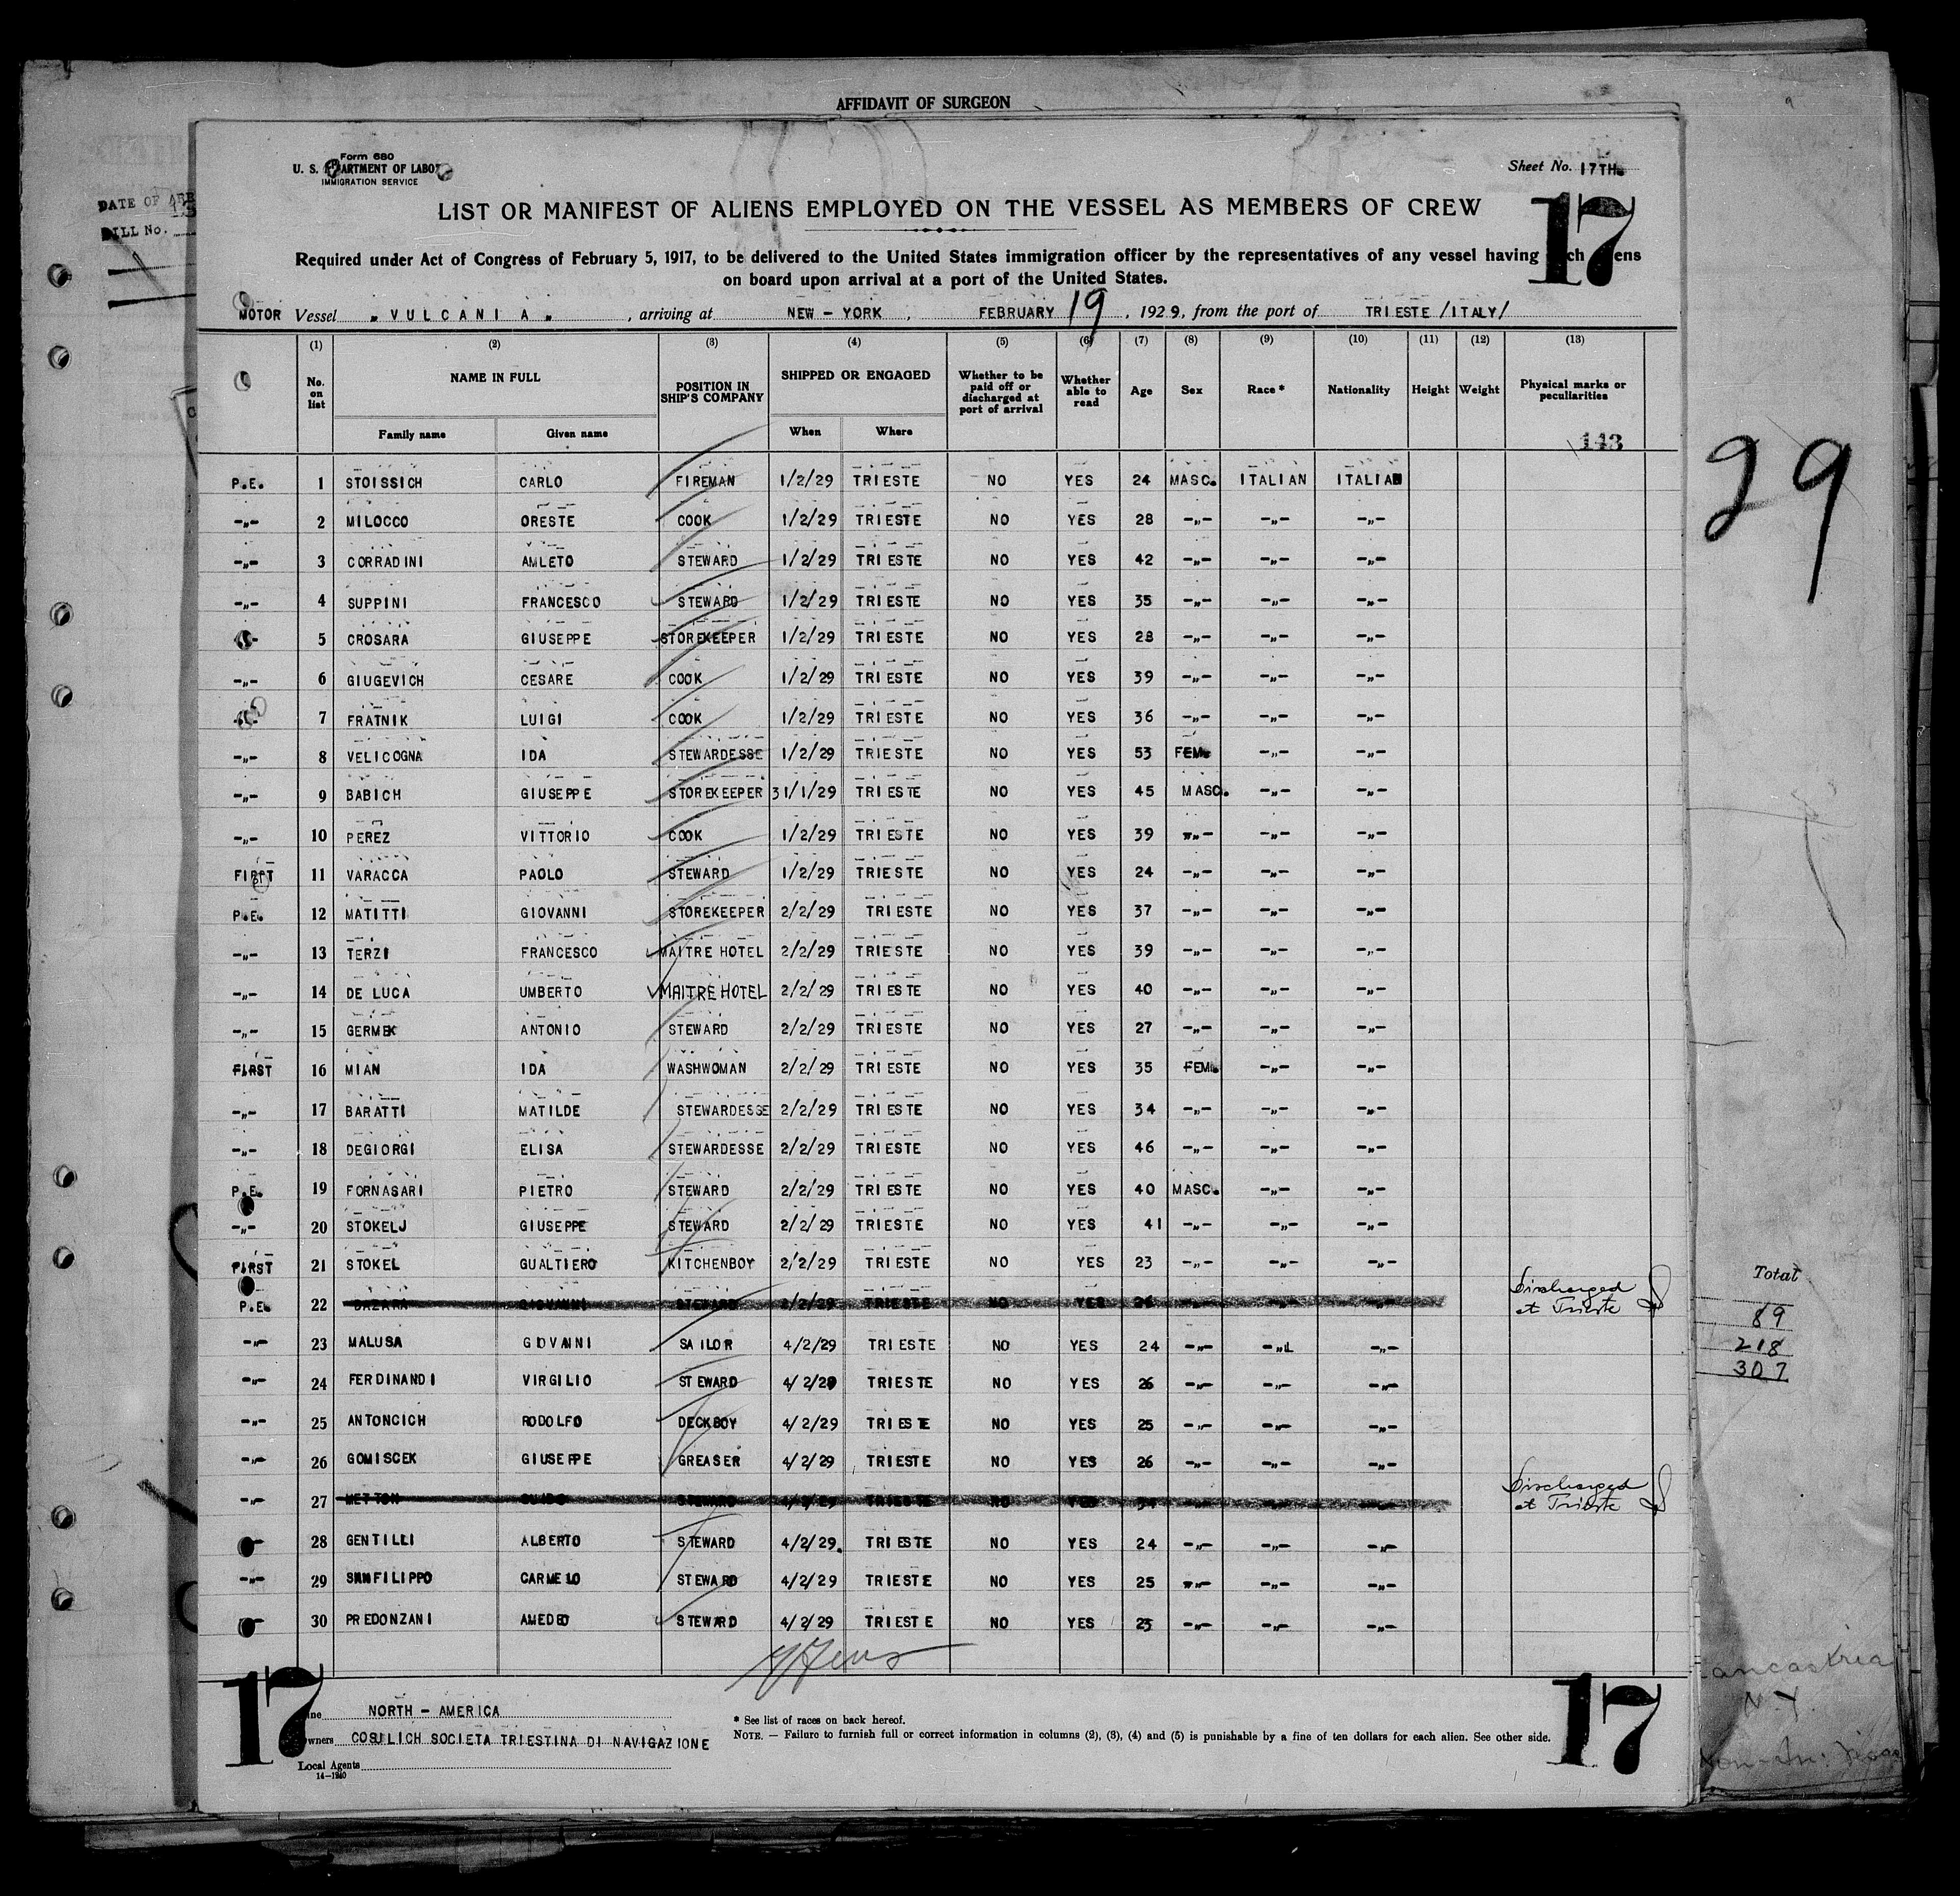 AFFIDAVIT OF SURGEON
Form 680
U. S. DEPARTMENT OF LABOR
IMMIGRATION SERVICE
Sheet No. 17TH.
17
DATE OF
BILL No.
LIST OR MANIFEST OF ALIENS EMPLOYED ON THE VESSEL AS MEMBERS OF CREW
Required under Act of Congress of February 5, 1917, to be delivered to the United States immigration officer by the representatives of any vessel having such aliens
on board upon arrival at a port of the United States.
MOTOR Vessel „ VULCANIA „ , arriving at NEW - YORK , FEBRUARY 19 , 1929, from the port of TRIESTE /ITALY/
(1) (2) (3) (4) (5) (6) (7) (8) (9) (10) (11) (12) (13)
No. on list NAME IN FULL Family name Given name POSITION IN SHIP'S COMPANY SHIPPED OR ENGAGED When Where Whether to be paid off or discharged at port of arrival Whether able to read Age Sex Race * Nationality Height Weight Physical marks or peculiarities
143
29
P.E. 1 STOISSICH CARLO FIREMAN 1/2/29 TRIESTE NO YES 24 MASC. ITALIAN ITALIAN
-„- 2 MILOCCO ORESTE COOK 1/2/29 TRIESTE NO YES 28 -„- -„- -„-
-„- 3 CORRADINI AMLETO STEWARD 1/2/29 TRIESTE NO YES 42 -„- -„- -„-
-„- 4 SUPPINI FRANCESCO STEWARD 1/2/29 TRIESTE NO YES 35 -„- -„- -„-
-„- 5 CROSARA GIUSEPPE STOREKEEPER 1/2/29 TRIESTE NO YES 28 -„- -„- -„-
-„- 6 GIUGEVICH CESARE COOK 1/2/29 TRIESTE NO YES 39 -„- -„- -„-
-„- 7 FRATNIK LUIGI COOK 1/2/29 TRIESTE NO YES 36 -„- -„- -„-
-„- 8 VELICOGNA IDA STEWARDESSE 1/2/29 TRIESTE NO YES 53 FEM. -„- -„-
-„- 9 BABICH GIUSEPPE STOREKEEPER 31/1/29 TRIESTE NO YES 45 MASC. -„- -„-
-„- 10 PEREZ VITTORIO COOK 1/2/29 TRIESTE NO YES 39 -„- -„- -„-
FIRST 11 VARACCA PAOLO STEWARD 1/2/29 TRIESTE NO YES 24 -„- -„- -„-
P.E. 12 MATITTI GIOVANNI STOREKEEPER 2/2/29 TRIESTE NO YES 37 -„- -„- -„-
-„- 13 TERZI FRANCESCO MAITRE HOTEL 2/2/29 TRIESTE NO YES 39 -„- -„- -„-
-„- 14 DE LUCA UMBERTO MAITRE HOTEL 2/2/29 TRIESTE NO YES 40 -„- -„- -„-
-„- 15 GERMEK ANTONIO STEWARD 2/2/29 TRIESTE NO YES 27 -„- -„- -„-
FIRST 16 MIAN IDA WASHWOMAN 2/2/29 TRIESTE NO YES 35 FEM. -„- -„-
-„- 17 BARATTI MATILDE STEWARDESSE 2/2/29 TRIESTE NO YES 34 -„- -„- -„-
-„- 18 DEGIORGI ELISA STEWARDESSE 2/2/29 TRIESTE NO YES 46 -„- -„- -„-
P.E. 19 FORNASARI PIETRO STEWARD 2/2/29 TRIESTE NO YES 40 MASC. -„- -„-
-„- 20 STOKELJ GIUSEPPE STEWARD 2/2/29 TRIESTE NO YES 41 -„- -„- -„-
FIRST 21 STOKEL GUALTIERO KITCHENBOY 2/2/29 TRIESTE NO YES 23 -„- -„- -„-
P.E. 22 GIOVANNI STEWARD 2/2/29 TRIESTE NO YES -„- -„- -„- Discharged at Trieste
-„- 23 MALUSA GIOVANNI SAILOR 4/2/29 TRIESTE NO YES 24 -„- -„- -„-
-„- 24 FERDINANDI VIRGILIO STEWARD 4/2/29 TRIESTE NO YES 26 -„- -„- -„-
-„- 25 ANTONCICH RODOLFO DECKBOY 4/2/29 TRIESTE NO YES 25 -„- -„- -„-
-„- 26 GOMISCEK GIUSEPPE GREASER 4/2/29 TRIESTE NO YES 26 -„- -„- -„-
-„- 27 STEWARD 4/2/29 TRIESTE NO YES -„- -„- -„- Discharged at Trieste
28 GENTILLI ALBERTO STEWARD 4/2/29. TRIESTE NO YES 24 -„- -„- -„-
-„- 29 SANFILIPPO CARMELO STEWARD 4/2/29 TRIESTE NO YES 25 -„- -„- -„-
30 PREDONZANI AMEDEO STEWARD 4/2/29 TRIESTE NO YES 23 -„- -„- -„-
Total
89
218
307
17
17
Line NORTH - AMERICA
Owners COSULICH SOCIETA TRIESTINA DI NAVIGAZIONE
Local Agents
14-1240
* See list of races on back hereof.
NOTE. — Failure to furnish full or correct information in columns (2), (3), (4) and (5) is punishable by a fine of ten dollars for each alien. See other side.
N.Y.